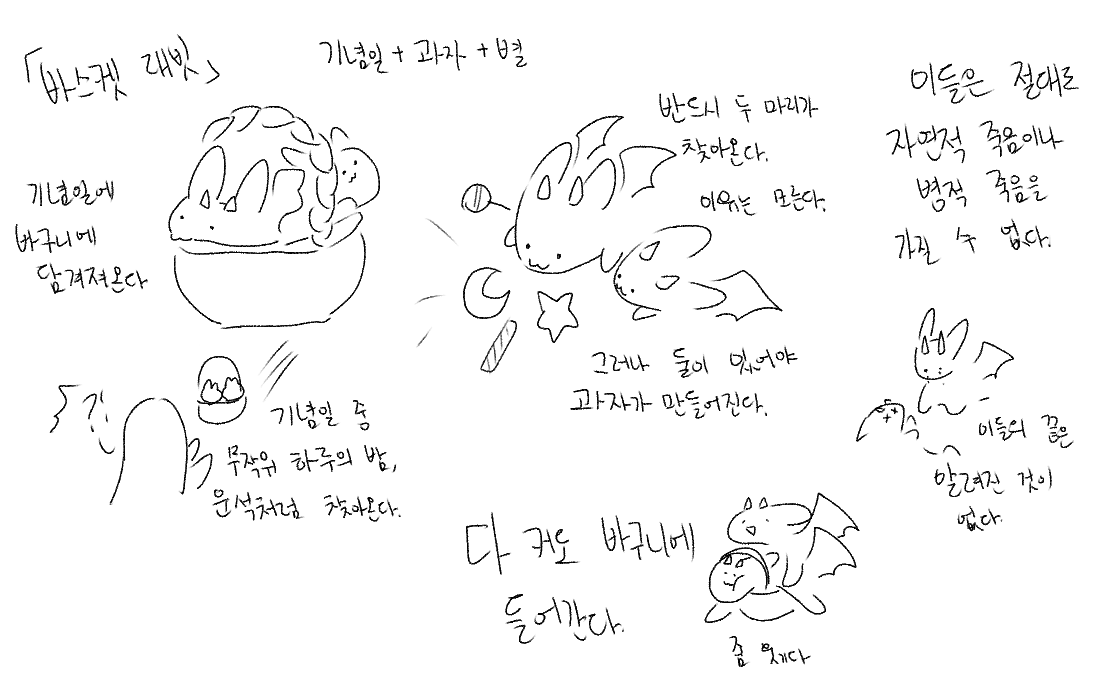 「바스켓 래빗」
기념일 + 과자 + 별
기념일에
바구니에
담겨져온다
반드시 두 마리가
찾아온다.
이유는 모른다.
그러나 둘이 있어야
과자가 만들어진다.
이들은 절대로
자연적 죽음이나
병적 죽음을
가질 수 없다.
이들의 끝은
알려진 것이
없다.
??
기념일 중
무작위 하루의 밤,
운석처럼 찾아온다.
다 커도 바구니에
들어간다.
좀 웃기다